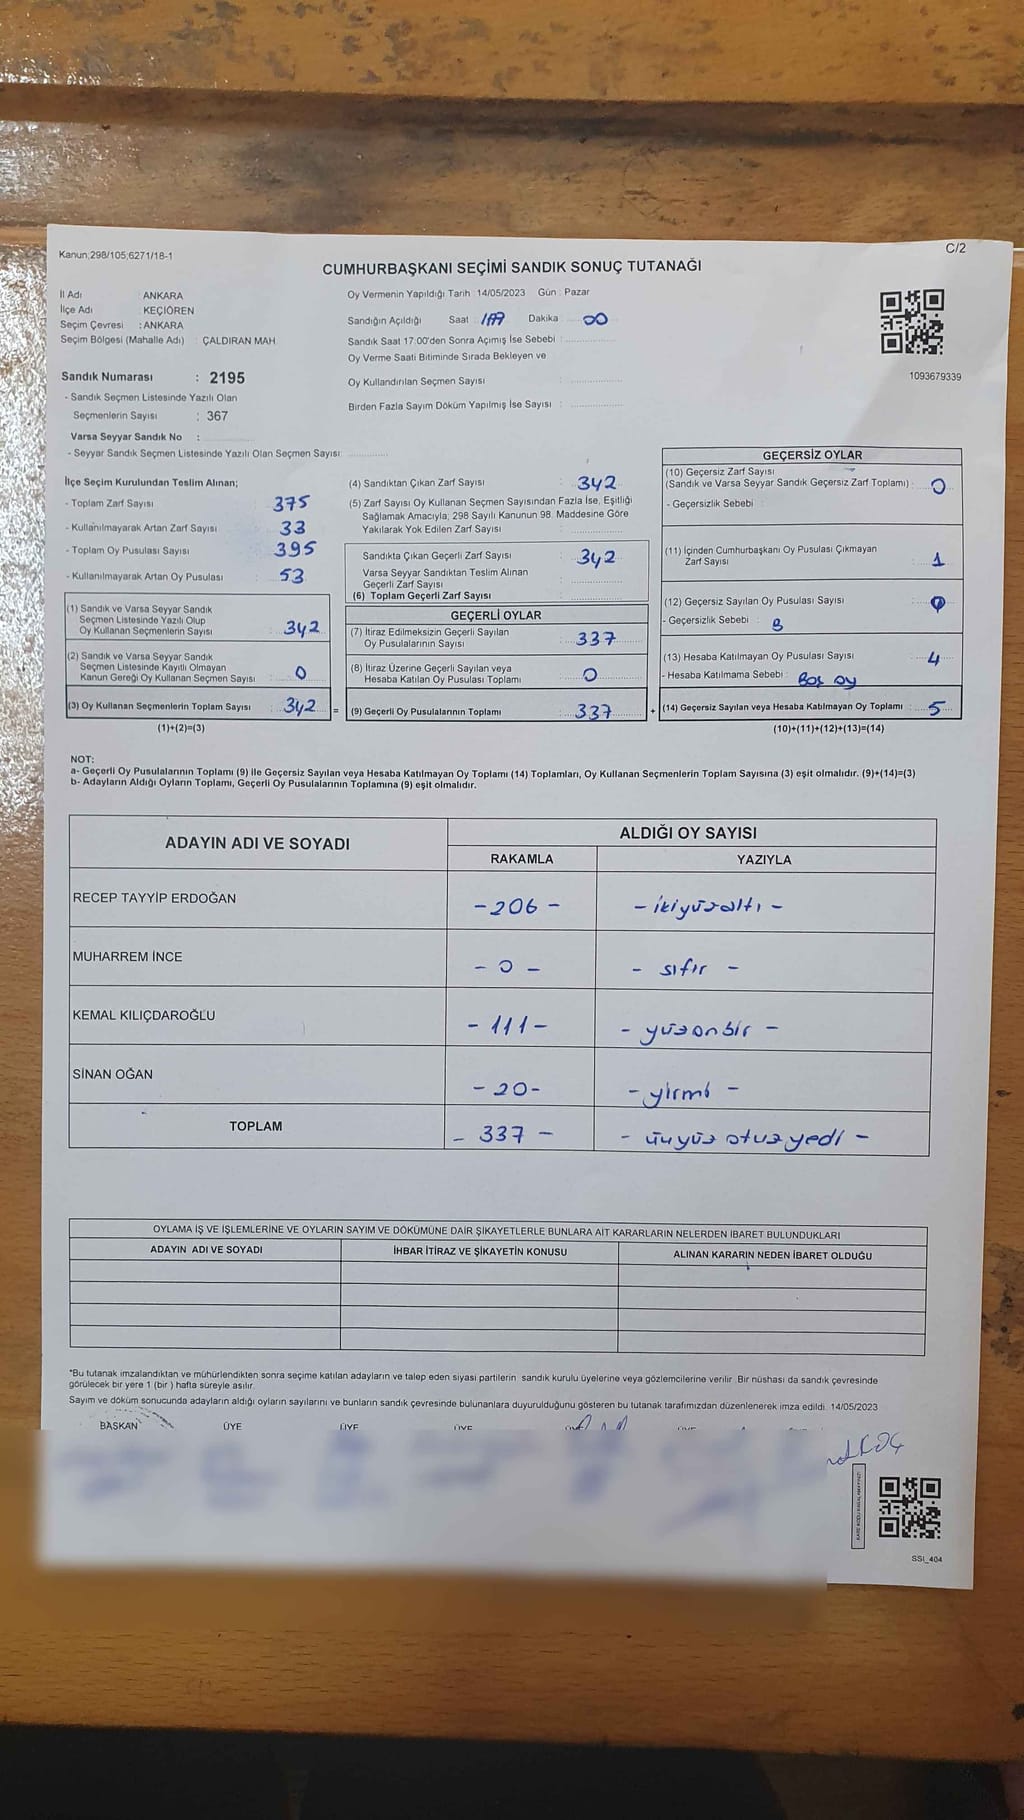 Kanun;298/105;6271/18-1
C/2
CUMHURBAŞKANI SEÇİMİ SANDIK SONUÇ TUTANAĞI
İl Adı : ANKARA
İlçe Adı : KEÇİÖREN
Seçim Çevresi : ANKARA
Seçim Bölgesi (Mahalle Adı) : ÇALDIRAN MAH.
Sandık Numarası : 2195
- Sandık Seçmen Listesinde Yazılı Olan
Seçmenlerin Sayısı : 367
Varsa Seyyar Sandık No :
- Seyyar Sandık Seçmen Listesinde Yazılı Olan Seçmen Sayısı:
Oy Vermenin Yapıldığı Tarih : 14/05/2023 Gün : Pazar
Sandığın Açıldığı Saat Dakika 00
Sandık Saat 17:00'den Sonra Açımış İse Sebebi :
Oy Verme Saati Bitiminde Sırada Bekleyen ve
Oy Kullandırılan Seçmen Sayısı :
Birden Fazla Sayım Döküm Yapılmış İse Sayısı :
1093679339
İlçe Seçim Kurulundan Teslim Alınan;
- Toplam Zarf Sayısı : 375
- Kullanılmayarak Artan Zarf Sayısı : 33
- Toplam Oy Pusulası Sayısı : 395
- Kullanılmayarak Artan Oy Pusulası : 53
(1) Sandık ve Varsa Seyyar Sandık
Seçmen Listesinde Yazılı Olup
Oy Kullanan Seçmenlerin Sayısı : 342
(2) Sandık ve Varsa Seyyar Sandık
Seçmen Listesinde Kayıtlı Olmayan
Kanun Gereği Oy Kullanan Seçmen Sayısı : 0
(3) Oy Kullanan Seçmenlerin Toplam Sayısı : 342 =
(1)+(2)=(3)
(4) Sandıktan Çıkan Zarf Sayısı : 342
(5) Zarf Sayısı Oy Kullanan Seçmen Sayısından Fazla İse, Eşitliği
Sağlamak Amacıyla; 298 Sayılı Kanunun 98. Maddesine Göre
Yakılarak Yok Edilen Zarf Sayısı :
Sandıkta Çıkan Geçerli Zarf Sayısı : 342
Varsa Seyyar Sandıktan Teslim Alınan
Geçerli Zarf Sayısı :
(6) Toplam Geçerli Zarf Sayısı :
GEÇERLİ OYLAR
(7) İtiraz Edilmeksizin Geçerli Sayılan
Oy Pusulalarının Sayısı : 337
(8) İtiraz Üzerine Geçerli Sayılan veya
Hesaba Katılan Oy Pusulası Toplamı : 0
(9) Geçerli Oy Pusulalarının Toplamı : 337 +
GEÇERSİZ OYLAR
(10) Geçersiz Zarf Sayısı
(Sandık ve Varsa Seyyar Sandık Geçersiz Zarf Toplamı) : 0
- Geçersizlik Sebebi :
(11) İçinden Cumhurbaşkanı Oy Pusulası Çıkmayan
Zarf Sayısı : 1
(12) Geçersiz Sayılan Oy Pusulası Sayısı : 0
- Geçersizlik Sebebi :
(13) Hesaba Katılmayan Oy Pusulası Sayısı : 4
- Hesaba Katılmama Sebebi : Boş oy
(14) Geçersiz Sayılan veya Hesaba Katılmayan Oy Toplamı : 5
(10)+(11)+(12)+(13)=(14)
NOT:
a- Geçerli Oy Pusulalarının Toplamı (9) ile Geçersiz Sayılan veya Hesaba Katılmayan Oy Toplamı (14) Toplamları, Oy Kullanan Seçmenlerin Toplam Sayısına (3) eşit olmalıdır. (9)+(14)=(3)
b- Adayların Aldığı Oyların Toplamı, Geçerli Oy Pusulalarının Toplamına (9) eşit olmalıdır.
ADAYIN ADI VE SOYADI
ALDIĞI OY SAYISI
RAKAMLA YAZIYLA
RECEP TAYYİP ERDOĞAN - 206 - - ikiyüzaltı -
MUHARREM İNCE - 0 - - sıfır -
KEMAL KILIÇDAROĞLU - 111 - - yüzonbir -
SİNAN OĞAN - 20 - - yirmi -
TOPLAM - 337 - - üçyüz otuzyedi -
OYLAMA İŞ VE İŞLEMLERİNE VE OYLARIN SAYIM VE DÖKÜMÜNE DAİR ŞİKAYETLERLE BUNLARA AİT KARARLARIN NELERDEN İBARET BULUNDUKLARI
ADAYIN ADI VE SOYADI İHBAR İTİRAZ VE ŞİKAYETİN KONUSU ALINAN KARARIN NEDEN İBARET OLDUĞU
*Bu tutanak imzalandıktan ve mühürlendikten sonra seçime katılan adayların ve talep eden siyasi partilerin sandık kurulu üyelerine veya gözlemcilerine verilir. Bir nüshası da sandık çevresinde
görülecek bir yere 1 (bir ) hafta süreyle asılır.
Sayım ve döküm sonucunda adayların aldığı oyların sayılarını ve bunların sandık çevresinde bulunanlara duyurulduğunu gösteren bu tutanak tarafımızdan düzenlenerek imza edildi. 14/05/2023
BAŞKAN ÜYE ÜYE ÜYE
SSI_404